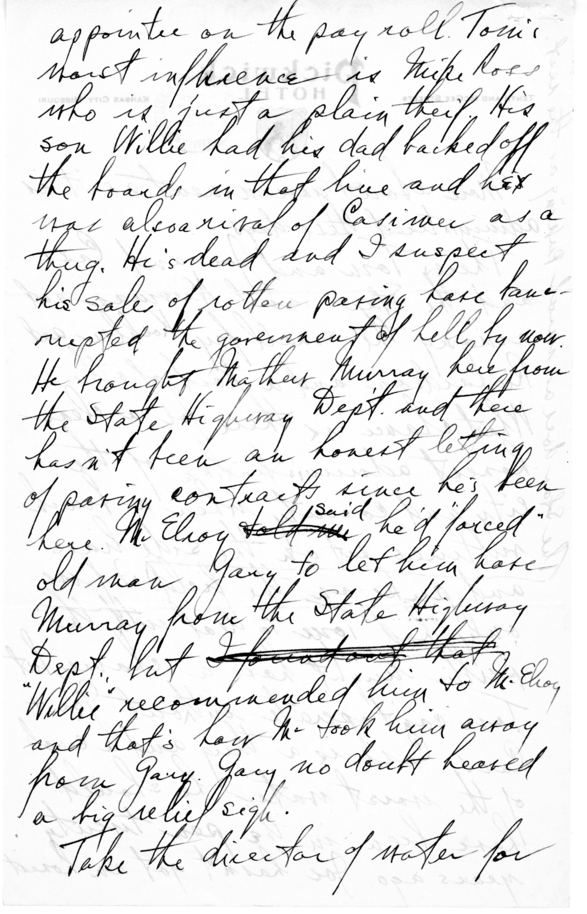 appointee on the pay roll. Tom's
worst influence is Mike Ross
who is just a plain theif. His
son Willie had his dad backed off
the boards in that line and he
was also a rival of Casimer as a
thug. He's dead and I suspect
his sales of rotten paving have banc-
rupted the government of hell by now.
He brought Mathew Murray here from
the State Highway Dept. and there
hasn't been an honest letting
of paving contracts since he's been
here. McElroy told me said he'd "forced"
old man Gary to let him have
Murray from the State Highway
Dept., but I found out that
"Willie" recommended him to McElroy
and that's how Mc took him away
from Gary. Gary no doubt heaved
a big relief sigh.
Take the director of water for
Pickwick
HOTEL
KANSAS CITY, MISSOURI